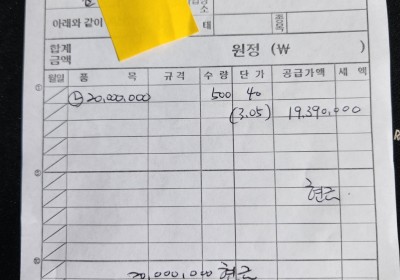 아래와 같이
합계
금액
원정 (₩ )
월일 품 목 규격 수량 단가 공급가액 세액
20,000,000 500 40
(3.05) 19,390,000
현금
20,000,000 현금